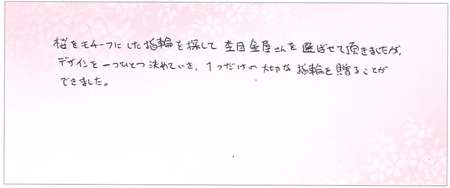 桜をモチーフにした指輪を探して 杢目金屋さんを選ばせて頂きましたが、
デザインを一つひとつ決めていき、1つだけの大切な指輪を贈ることが
できました。